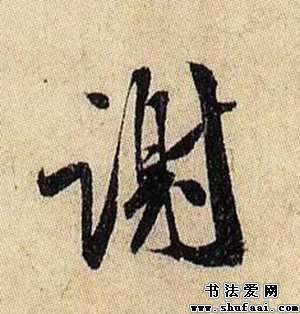 谢
书法爱网
www.shufaai.com